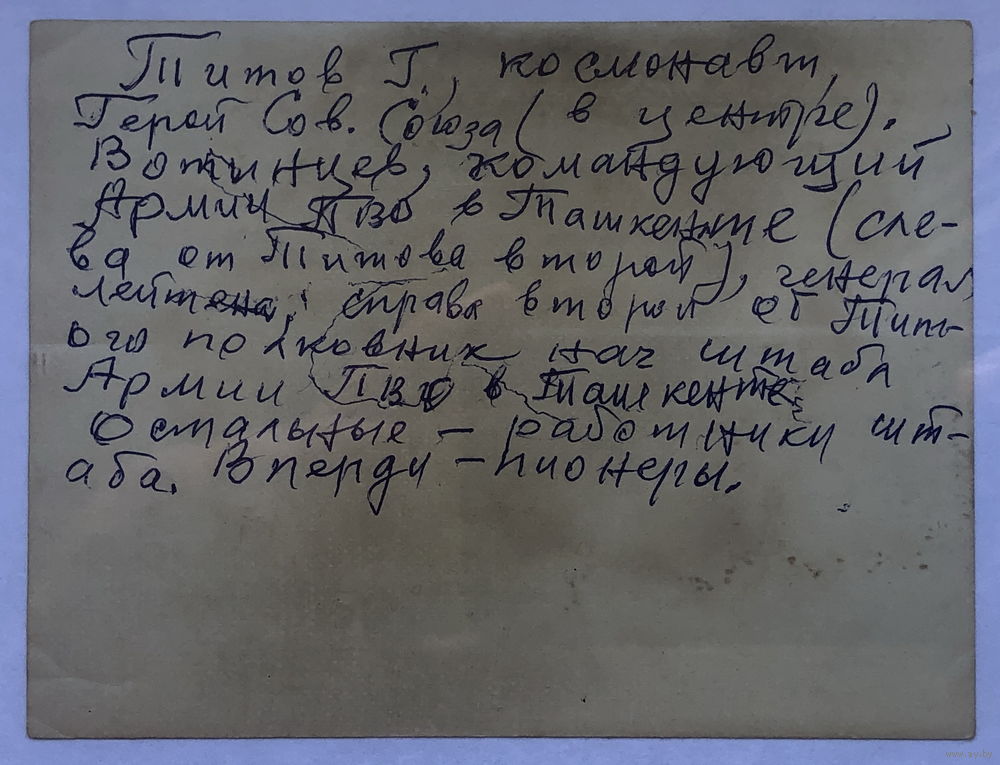 Титов Г., космонавт,
Герой Сов. Союза (в центре).
Вотинцев, командующий
Армии ПВО в Ташкенте (сле-
ва от Титова второй), генерал
лейтена; справа второй от Тит-
ого полковник нач штаба
Армии ПВО в Ташкенте
Остальные – работники шт-
аба. Вперди – пионеры.
www.ay.by